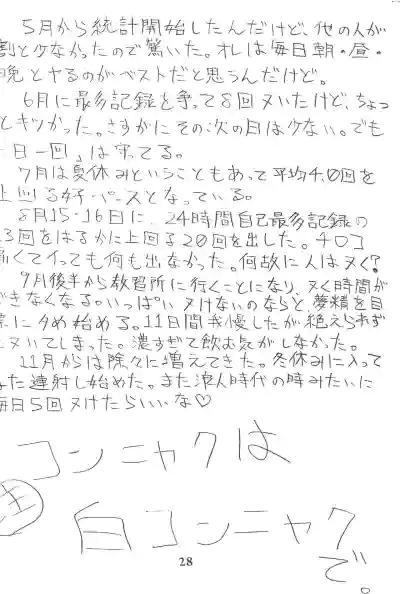 5月から統計開始したんだけど、他の人が
割と少なかったので驚いた。オレは毎日朝・昼・
晩とヤるのがベストだと思うんだけど。
6月に最多記録を争って8回ヌいたけど、ちょっ
とキツかった。さすがにその次の日は少ない。でも
一日一回」は守ってる。
7月は夏休みということもあって平均4.0回を
上回る好ペースとなっている。
8月15・16日に、24時間自己最多記録の
13回をはるかに上回る20回を出した。チロコ
痛くてイっても何も出なかった。何故に人はヌく?
9月後半から教習所に行くことになり、ヌく時間が
できなくなる。いっぱいヌけないのならと、夢精を目
標にタめ始める。11日間我慢したが絶えられず
ヌいてしまった。濃すぎて飲む気がしなかった。
11月からは除々に増えてきた。冬休みに入って
また連射し始めた。また浪人時代の時みたいに
毎日5回ヌけたらいいな♡
コンニャクは
白コンニャク
で。
28